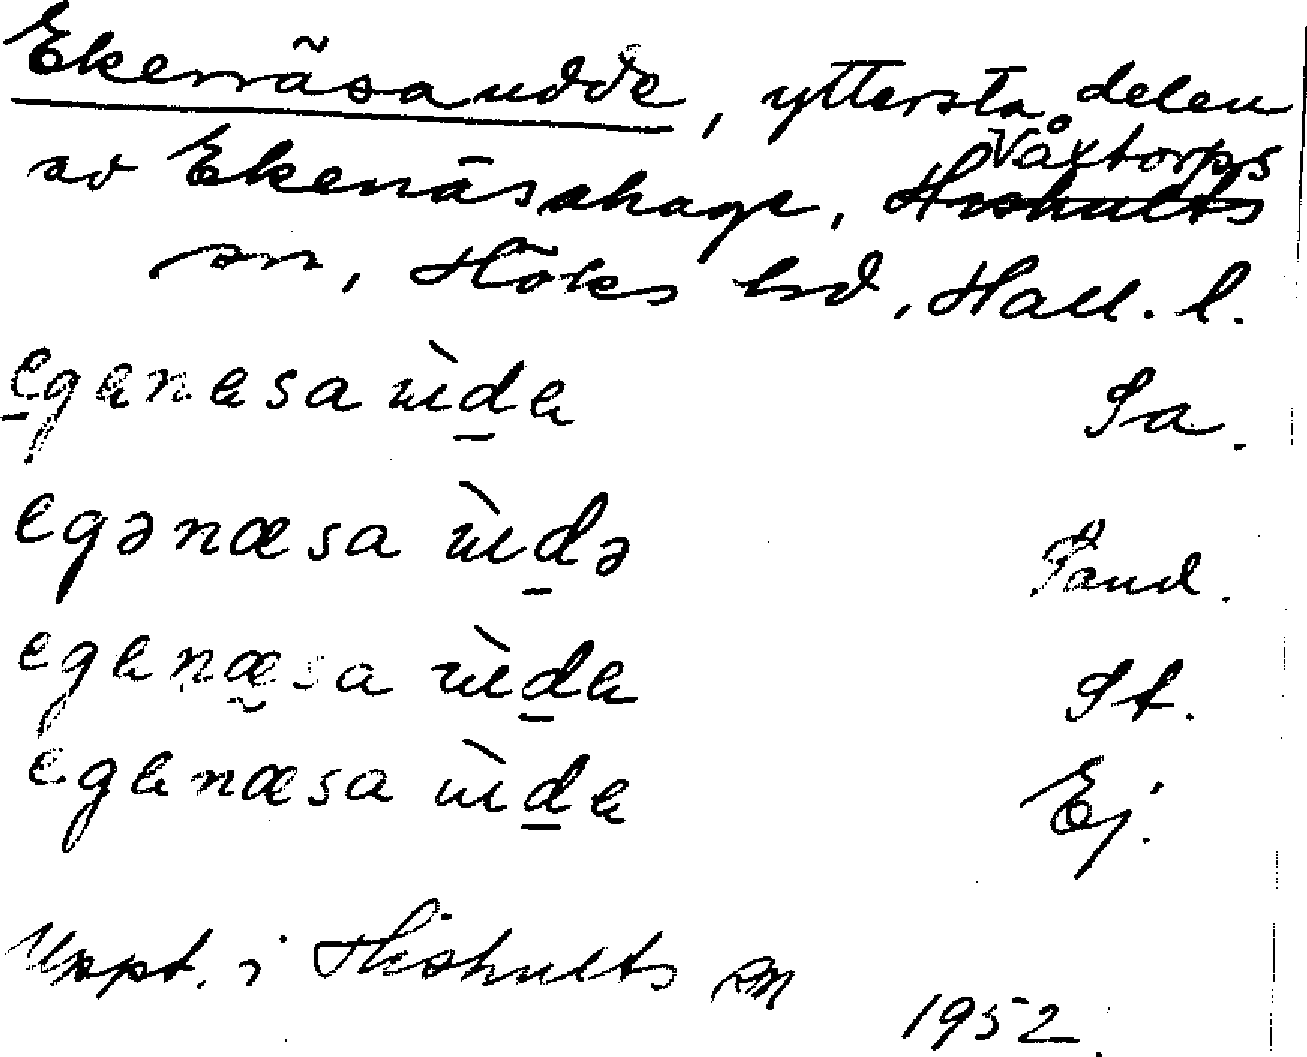 Ekenäsaudde, yttersta delen
av Ekenäsahage, Våxtorps
Hishults
sn, Höks hd, Hall. l.
egenesa ùde Sa.
egənæsa ùdə Pand.
egenæsa ùde St.
egenæsa ùde Ej.
Uppt. i Hishults sn 1952.